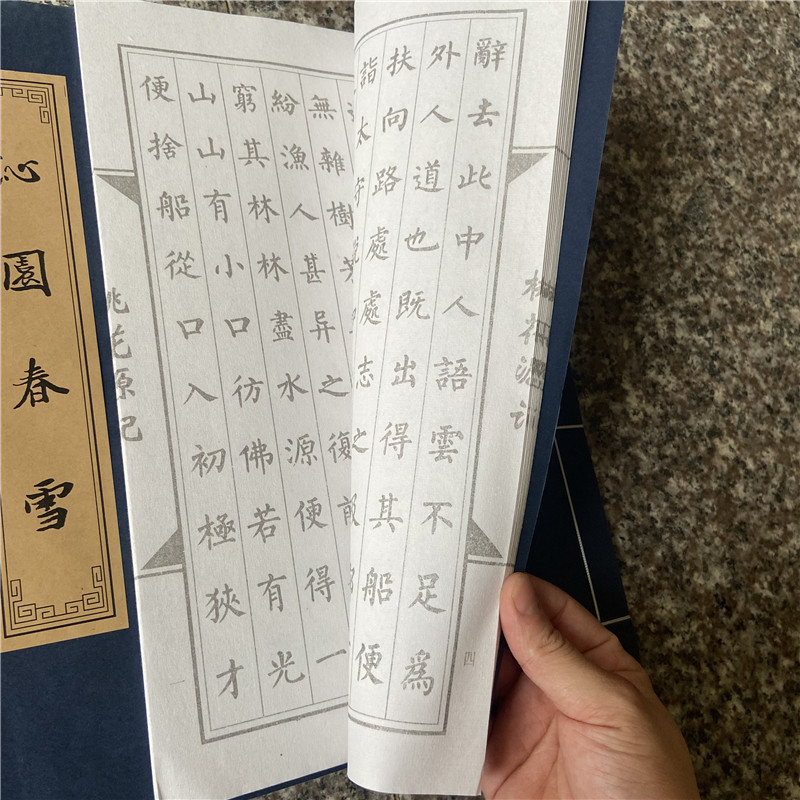 辭去此中人語雲不足爲
外人道也既出得其船便
扶向路處處志之
詣太守
無雜樹芳
紛漁人甚异之復
窮其林林盡水源便得一
山山有小口彷佛若有光
便捨船從口入初極狹才
桃花源記
桃花源記
四
沁園春雪